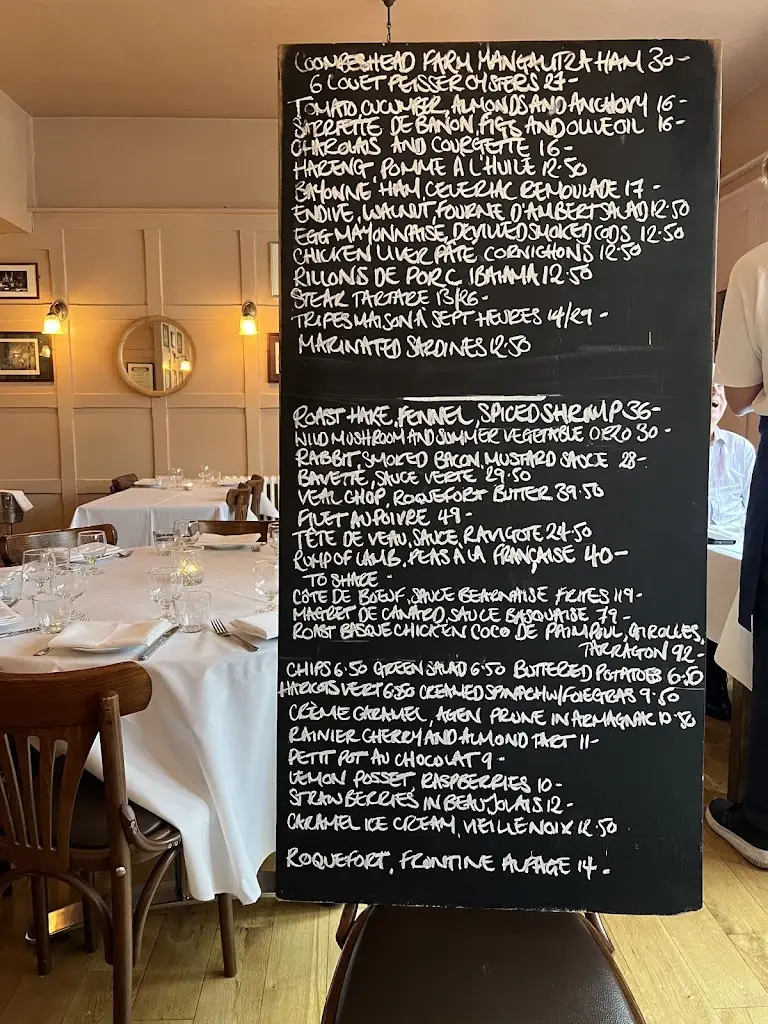 COOMBESHEAD FARM MANGALITZA HAM 30-
6 LOUET FEISSER OYSTERS 27-
TOMATO CUCUMBER, ALMONDS AND ANCHOVY 16-
SARRIETTE DE BANON, FIGS AND OLIVE OIL 16-
CHAROLAIS AND COURGETTE 16-
HARENG, POMME À L'HUILE 12.50
BAYONNE HAM CELERIAC REMOULADE 17-
ENDIVE, WALNUT, FOURNE D'AMBERT SALAD 12.50
EGG MAYONNAISE, DEVILLED SMOKED CODS 12.50
CHICKEN LIVER PÂTÉ CORNICHONS 12.50
RILLONS DE PORC IBAIAMA 12.50
STEAK TARTARE 13/26-
TRIPES MAISON À SEPT HEURES 14/29-
MARINATED SARDINES 12.50
ROAST HAKE, FENNEL, SPICED SHRIMP 36-
WILD MUSHROOM AND SUMMER VEGETABLE ORZO 30-
RABBIT SMOKED BACON MUSTARD SAUCE 28-
BAVETTE, SAUCE VERTE 29.50
VEAL CHOP, ROQUEFORT BUTTER 39.50
FILET AU POIVRE 49-
TÊTE DE VEAU, SAUCE RAVIGOTE 24.50
RUMP OF LAMB, PEAS A LA FRANÇAISE 40-
TO SHARE -
CÔTE DE BŒUF, SAUCE BEARNAISE FRITES 119-
MAGRET DE CANARD, SAUCE BASQUAISE 79-
ROAST BASQUE CHICKEN COCO DE PAIMPOL, GIROLLES,
TARRAGON 92-
CHIPS 6.50 GREEN SALAD 6.50 BUTTERED POTATOES 6.50
HARICOTS VERT 6.50 CREAMED SPINACH W/FOIE GRAS 9.50
CRÈME CARAMEL, AGEN PRUNE IN ARMAGNAC 10.50
RAINIER CHERRY AND ALMOND TART 11-
PETIT POT AU CHOCOLAT 9-
LEMON POSSET RASPBERRIES 10-
STRAWBERRIES IN BEAUJOLAIS 12-
CARAMEL ICE CREAM, VIEILLE NOIX 12.50
ROQUEFORT, FRONTINE AUFAGE 14-